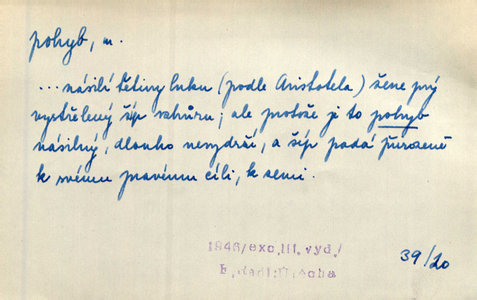 pohyb, m.
...násilí tětivy luku (podle Aristotela) žene prý
vystřelený šíp vzhůru; ale protože je to pohyb
násilný, dlouho nevydrží, a šíp padá přirozeně
k svému pravému cíli, k zemi.
1946/exc.lit.vyd./
39/20